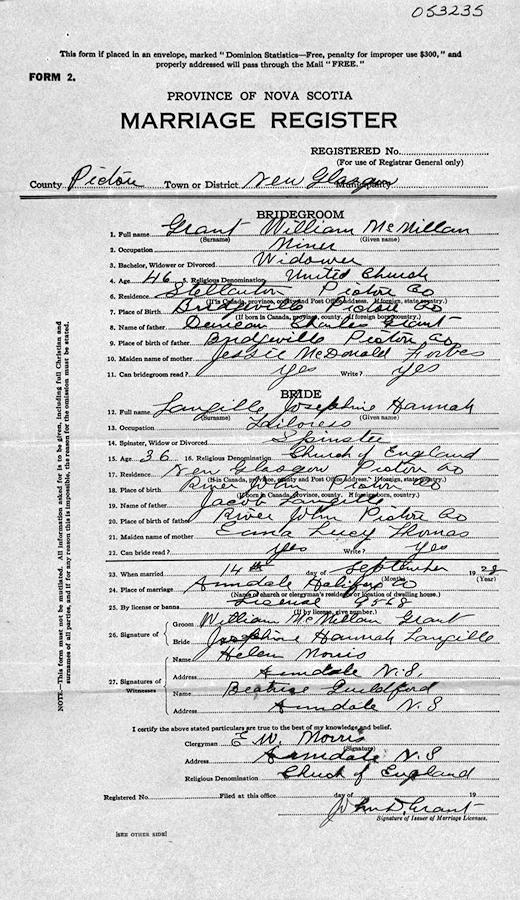 053235
This form if placed in an envelope, marked "Dominion Statistics—Free, penalty for improper use $300," and
properly addressed will pass through the Mail "FREE."
FORM 2.
PROVINCE OF NOVA SCOTIA
MARRIAGE REGISTER
REGISTERED No.
(For use of Registrar General only)
County Pictou Town or District New Glasgow Municipality
BRIDEGROOM
1. Full name Grant William McMillan
(Surname) (Given name)
2. Occupation Miner
3. Bachelor, Widower or Divorced Widower
4. Age 46 5. Religious Denomination United Church
6. Residence Stellarton Pictou Co
(If in Canada, province, county and Post Office address. If foreign, state country.)
7. Place of Birth Bridgeville Pictou Co
(If born in Canada, province, county. If foreign born, country.)
8. Name of father Duncan Charles Grant
9. Place of birth of father Bridgeville Pictou Co
10. Maiden name of mother Jessie McDonald Forbes
11. Can bridegroom read? yes Write? yes
BRIDE
12. Full name Langille Josephine Hannah
(Surname) (Given name)
13. Occupation Tailoress
14. Spinster, Widow or Divorced Spinster
15. Age 36 16. Religious Denomination Church of England
17. Residence New Glasgow Pictou Co
(If in Canada, province, county and Post Office address. If foreign, state country.)
18. Place of birth River John Pictou Co
(If born in Canada, province, county. If foreign born, country.)
19. Name of father Jacob Langille
20. Place of birth of father River John Pictou Co
21. Maiden name of mother Lucy Thomas
22. Can bride read? yes Write? yes
23. When married 14th day of September 1928
(Month) (Year)
24. Place of marriage Armdale Halifax Co
(Name of church or clergyman's residence or location of dwelling house.)
25. By license or banns License 9568
(If by license, give number.)
26. Signature of
Groom William McMillan Grant
Bride Josephine Hannah Langille
27. Signatures of Witnesses
Name Helen Morris
Address Armdale N.S.
Name Beatrice Guildford
Address Armdale N.S
I certify the above stated particulars are true to the best of my knowledge and belief.
Clergyman E. W. Morris
(Signature)
Address Armdale N.S
Religious Denomination Church of England
Registered No. Filed at this office day of 19
John D. Grant
Signature of Issuer of Marriage Licenses.
[SEE OTHER SIDE]
NOTE.—This form must not be mutilated. All information asked for is to be given, including full Christian and
surnames of all parties, and if for any reason this is impossible, the reason for the omission must be stated.